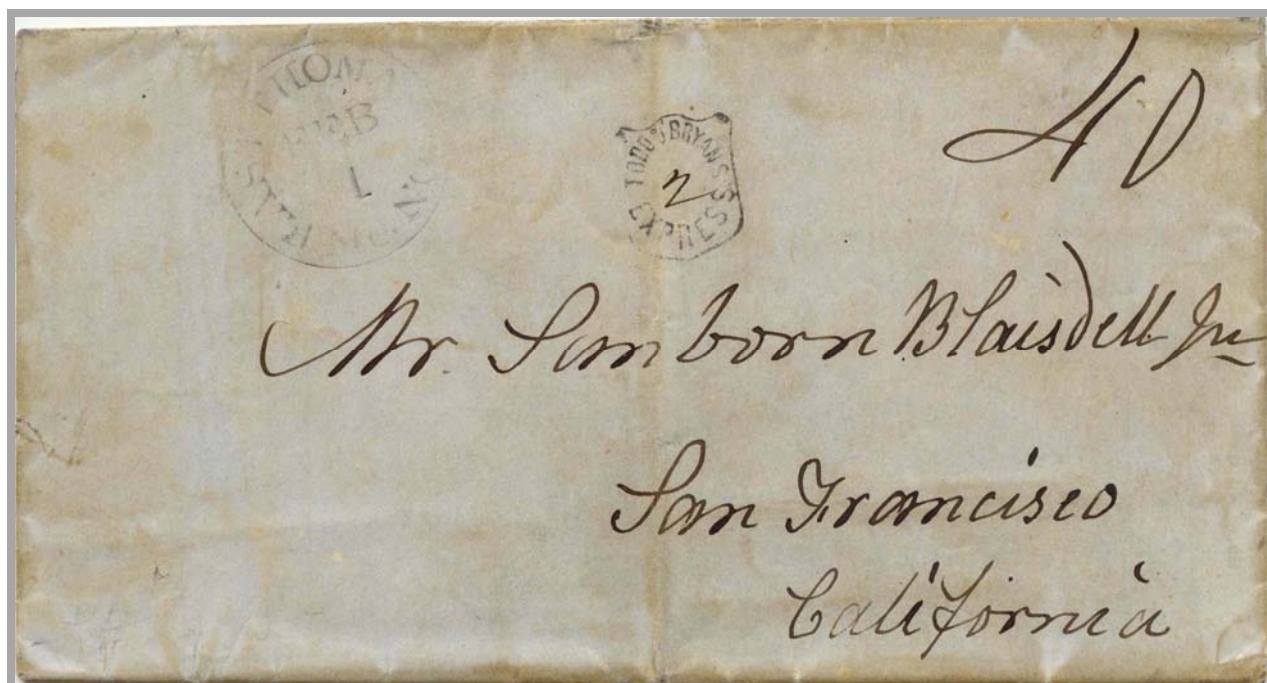 EAST THOMASTON
FEB
1
TODD & BRYAN'S
2
EXPRESS
40
Mr. Sanborn Blaisdell Jr
San Francisco
California